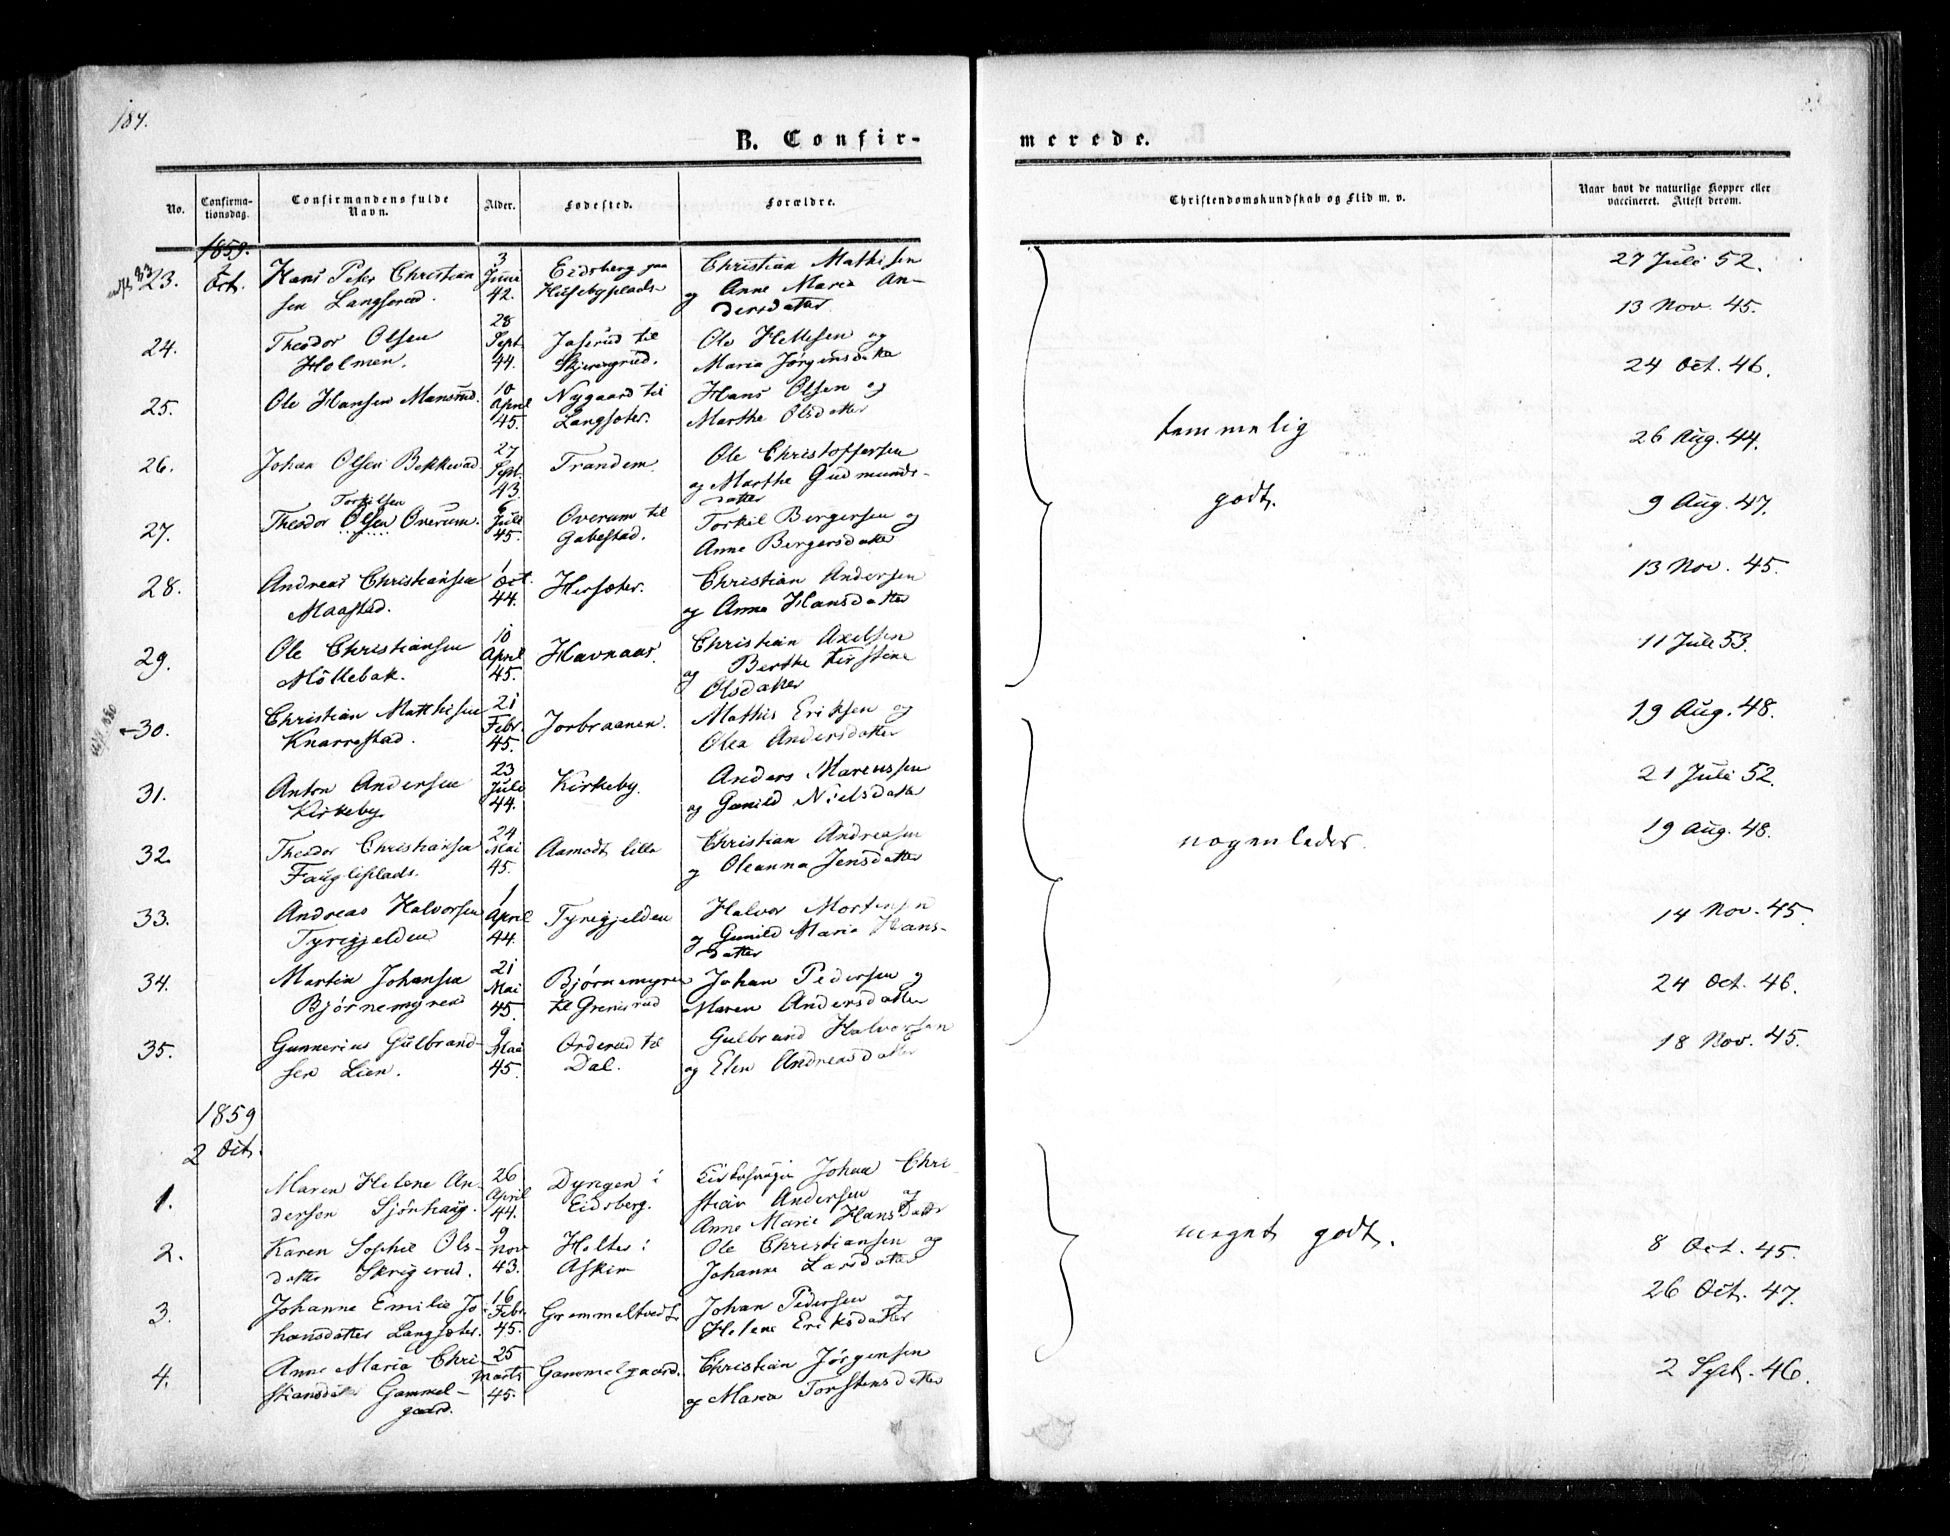 187.
B. Confir-
merede.
No.
Confirma-
tionsdag.
Confirmandens fulde
Navn.
Alder.
Fødested.
Forældre.
Christendomskundskab og Flid m. v.
Naar havt de naturlige Kopper eller
vaccineret. Attest derom.
1859.
2
Oct.
23.
Hans Peter Christian
sen Langsrud.
3
Juni
42.
Eidsberg paa
Husebyplads
Christian Mathisen
og Anne Maria An-
dersdatter
27 Juli 52.
24.
Theodor Olsen
Holmen.
28
Sept
44.
Jaserud til
Skjeringrud.
Ole Hellesen og
Maria Jørgensdatter
13 Nov. 45.
25.
Ole Hansen Mansrud.
10
April
45.
Nygaard til
Langsæter.
Hans Olsen og
Marthe Olsdatter
24 Oct. 46.
26.
Johan Olsen Bekkevad
27
Sept.
43.
Trandem.
Ole Christoffersen
og Marthe Gudmunds-
datter
26 Aug. 44.
27.
Torkilsen
Theodor Olsen Overum.
6
Juli
45.
Overum til
Gabestad.
Torkil Bergersen og
Anne Bergersdatter
9 Aug. 47.
28.
Andreas Christiansen
Maastad.
1
Oct.
44.
Hersæter.
Christian Andersen
og Anne Hansdatter
13 Nov. 45.
29.
Ole Christiansen
Möllebak.
10
April
45.
Havnaas.
Christian Axelsen
og Berthe Kirstine
Olsdatter
11 Juli 53.
temmelig
godt.
30.
Christian Matthisen
Knarrestad.
21
Febr.
45.
Jorbraanen.
Mathis Eriksen og
Olea Andersdatter
19 Aug. 48.
31.
Anton Andersen
Kirkeby
23
Juli
44.
Kirkeby.
Anders Marcussen
og Gunild Nielsdatter
21 Juli 52.
32.
Theodor Christiansen
Fauglisplads.
24
Mai
45.
Aamodt lille
Christian Andreasen
og Oleanna Jensdatter
19 Aug. 48.
33.
Andreas Halvorsen
Tyrigjelden
1
April
44.
Tyrigjelden
Halvor Mortensen
og Gunild Maria Hans-
datter
14 Nov. 45.
34.
Martin Johansen
Bjørnemyren
21
Mai
45.
Bjørnemyren
til Grensrud
Johan Pedersen og
Maren Andersdatter
24 Oct. 46.
35.
Gunnerius Gulbrand-
sen Lien.
9
Mai
45.
Orderud til
Dal.
Gulbrand Halvorsen
og Elen Andreasdatter
18 Nov. 45.
nogenledes.
1859
2 Oct.
1.
Maren Helene An-
dersen Sjönhaug.
26
April
44.
Dyngen i
Eidsberg.
Johan Chri-
stian Andersen og
Anne Marie Hansdatter
2.
Karen Sophie Ols-
datter Skrigerud.
9
Nov
43.
Holter i
Askim
Ole Christiansen og
Johanne Larsdatter
8 Oct. 45.
3.
Johanne Emilie Jo-
hansdatter Langsæter.
16
Febr.
45.
Gremmeltvedt
Johan Pedersen og
Helene Eriksdatter
26 Oct. 47.
4.
Anne Maria Chri-
stiansdatter Gammel-
gaard.
25
Marts
45.
Gammelgaard.
Christian Jörgensen
og Maria Torstensdatter
2 Sept. 46.
meget godt.